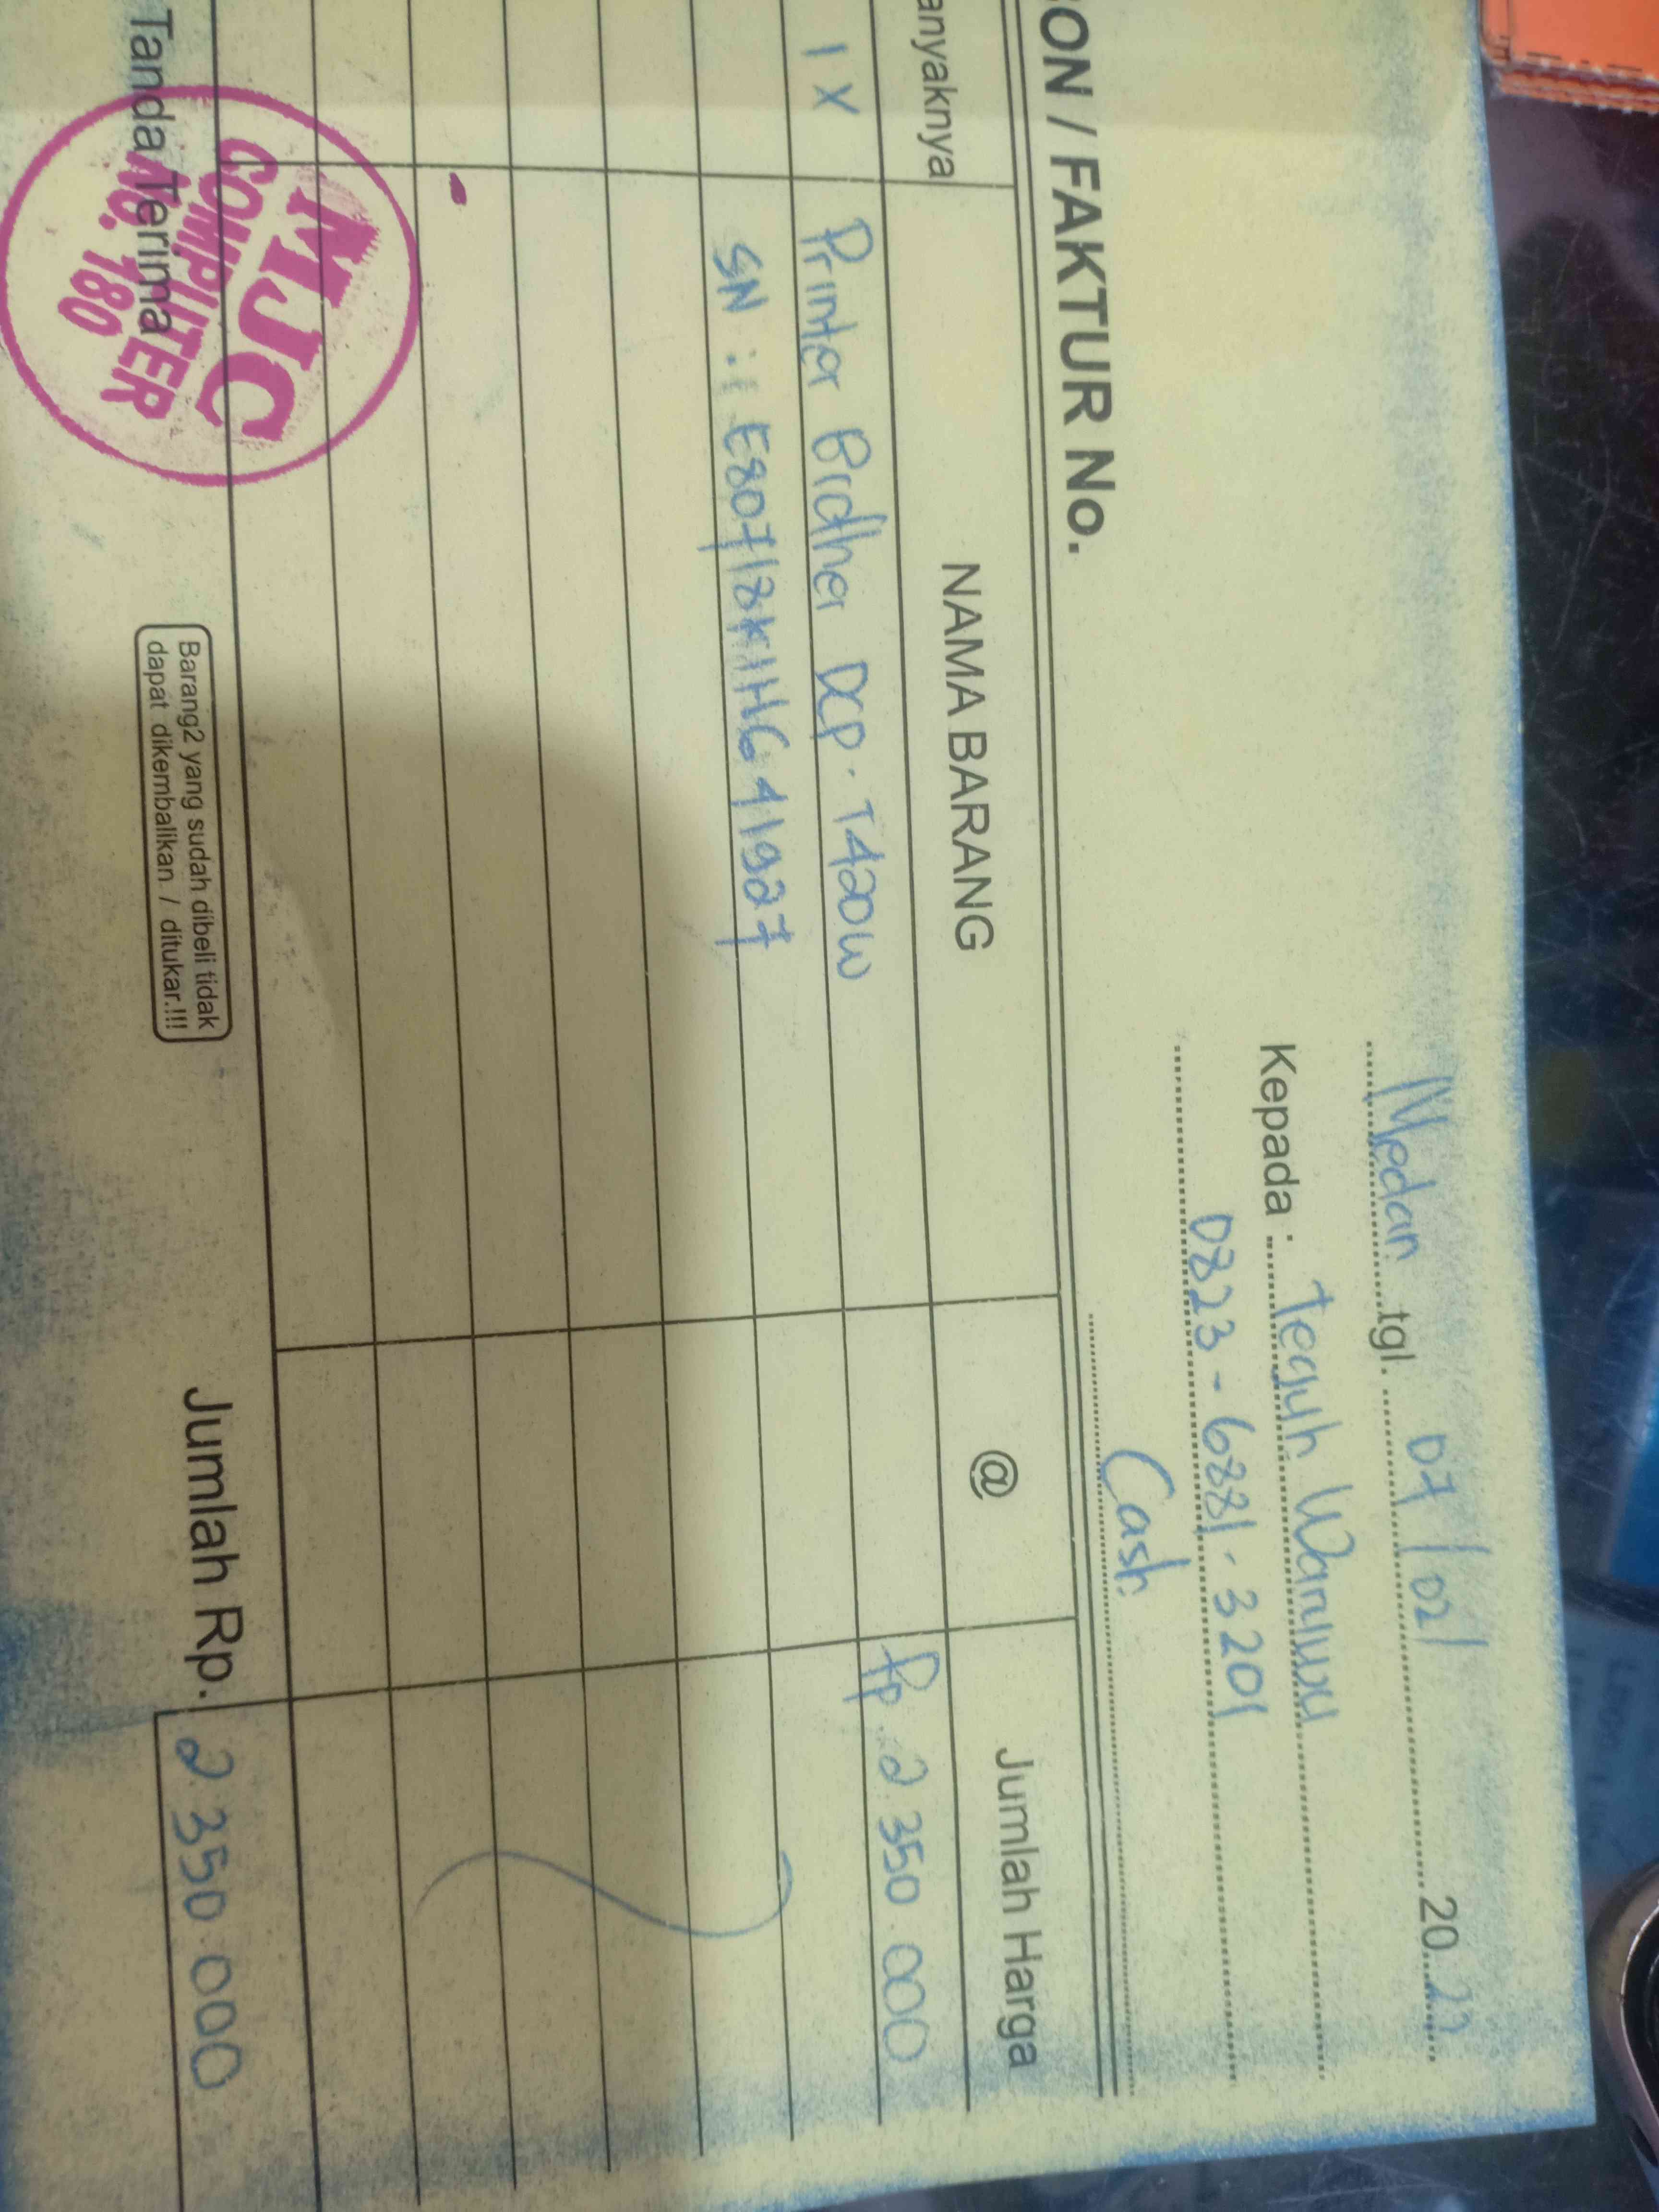 Medan tgl. 07/02/ 2022
Kepada : Teguh Waruwu
0823-6881.3201
Cash
BON / FAKTUR No.
anyaknya NAMA BARANG @ Jumlah Harga
1 X Printer Brother DCP. T420W Rp 2.350.000
SN : E80718K1HG41927
Tanda Terima
MJC
COMPUTER
NO. 180
Barang2 yang sudah dibeli tidak
dapat dikembalikan / ditukar.!!!
Jumlah Rp. 2.350.000